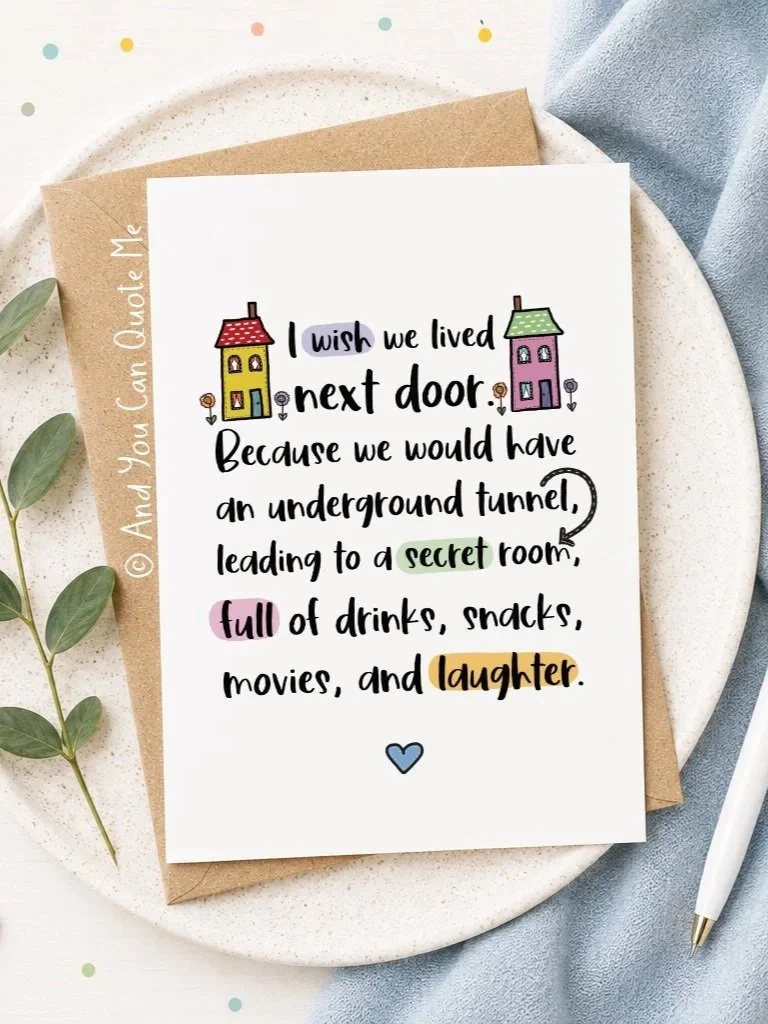 I wish we lived
next door.
Because we would have
an underground tunnel,
leading to a secret room,
full of drinks, snacks,
movies, and laughter.
© And You Can Quote Me